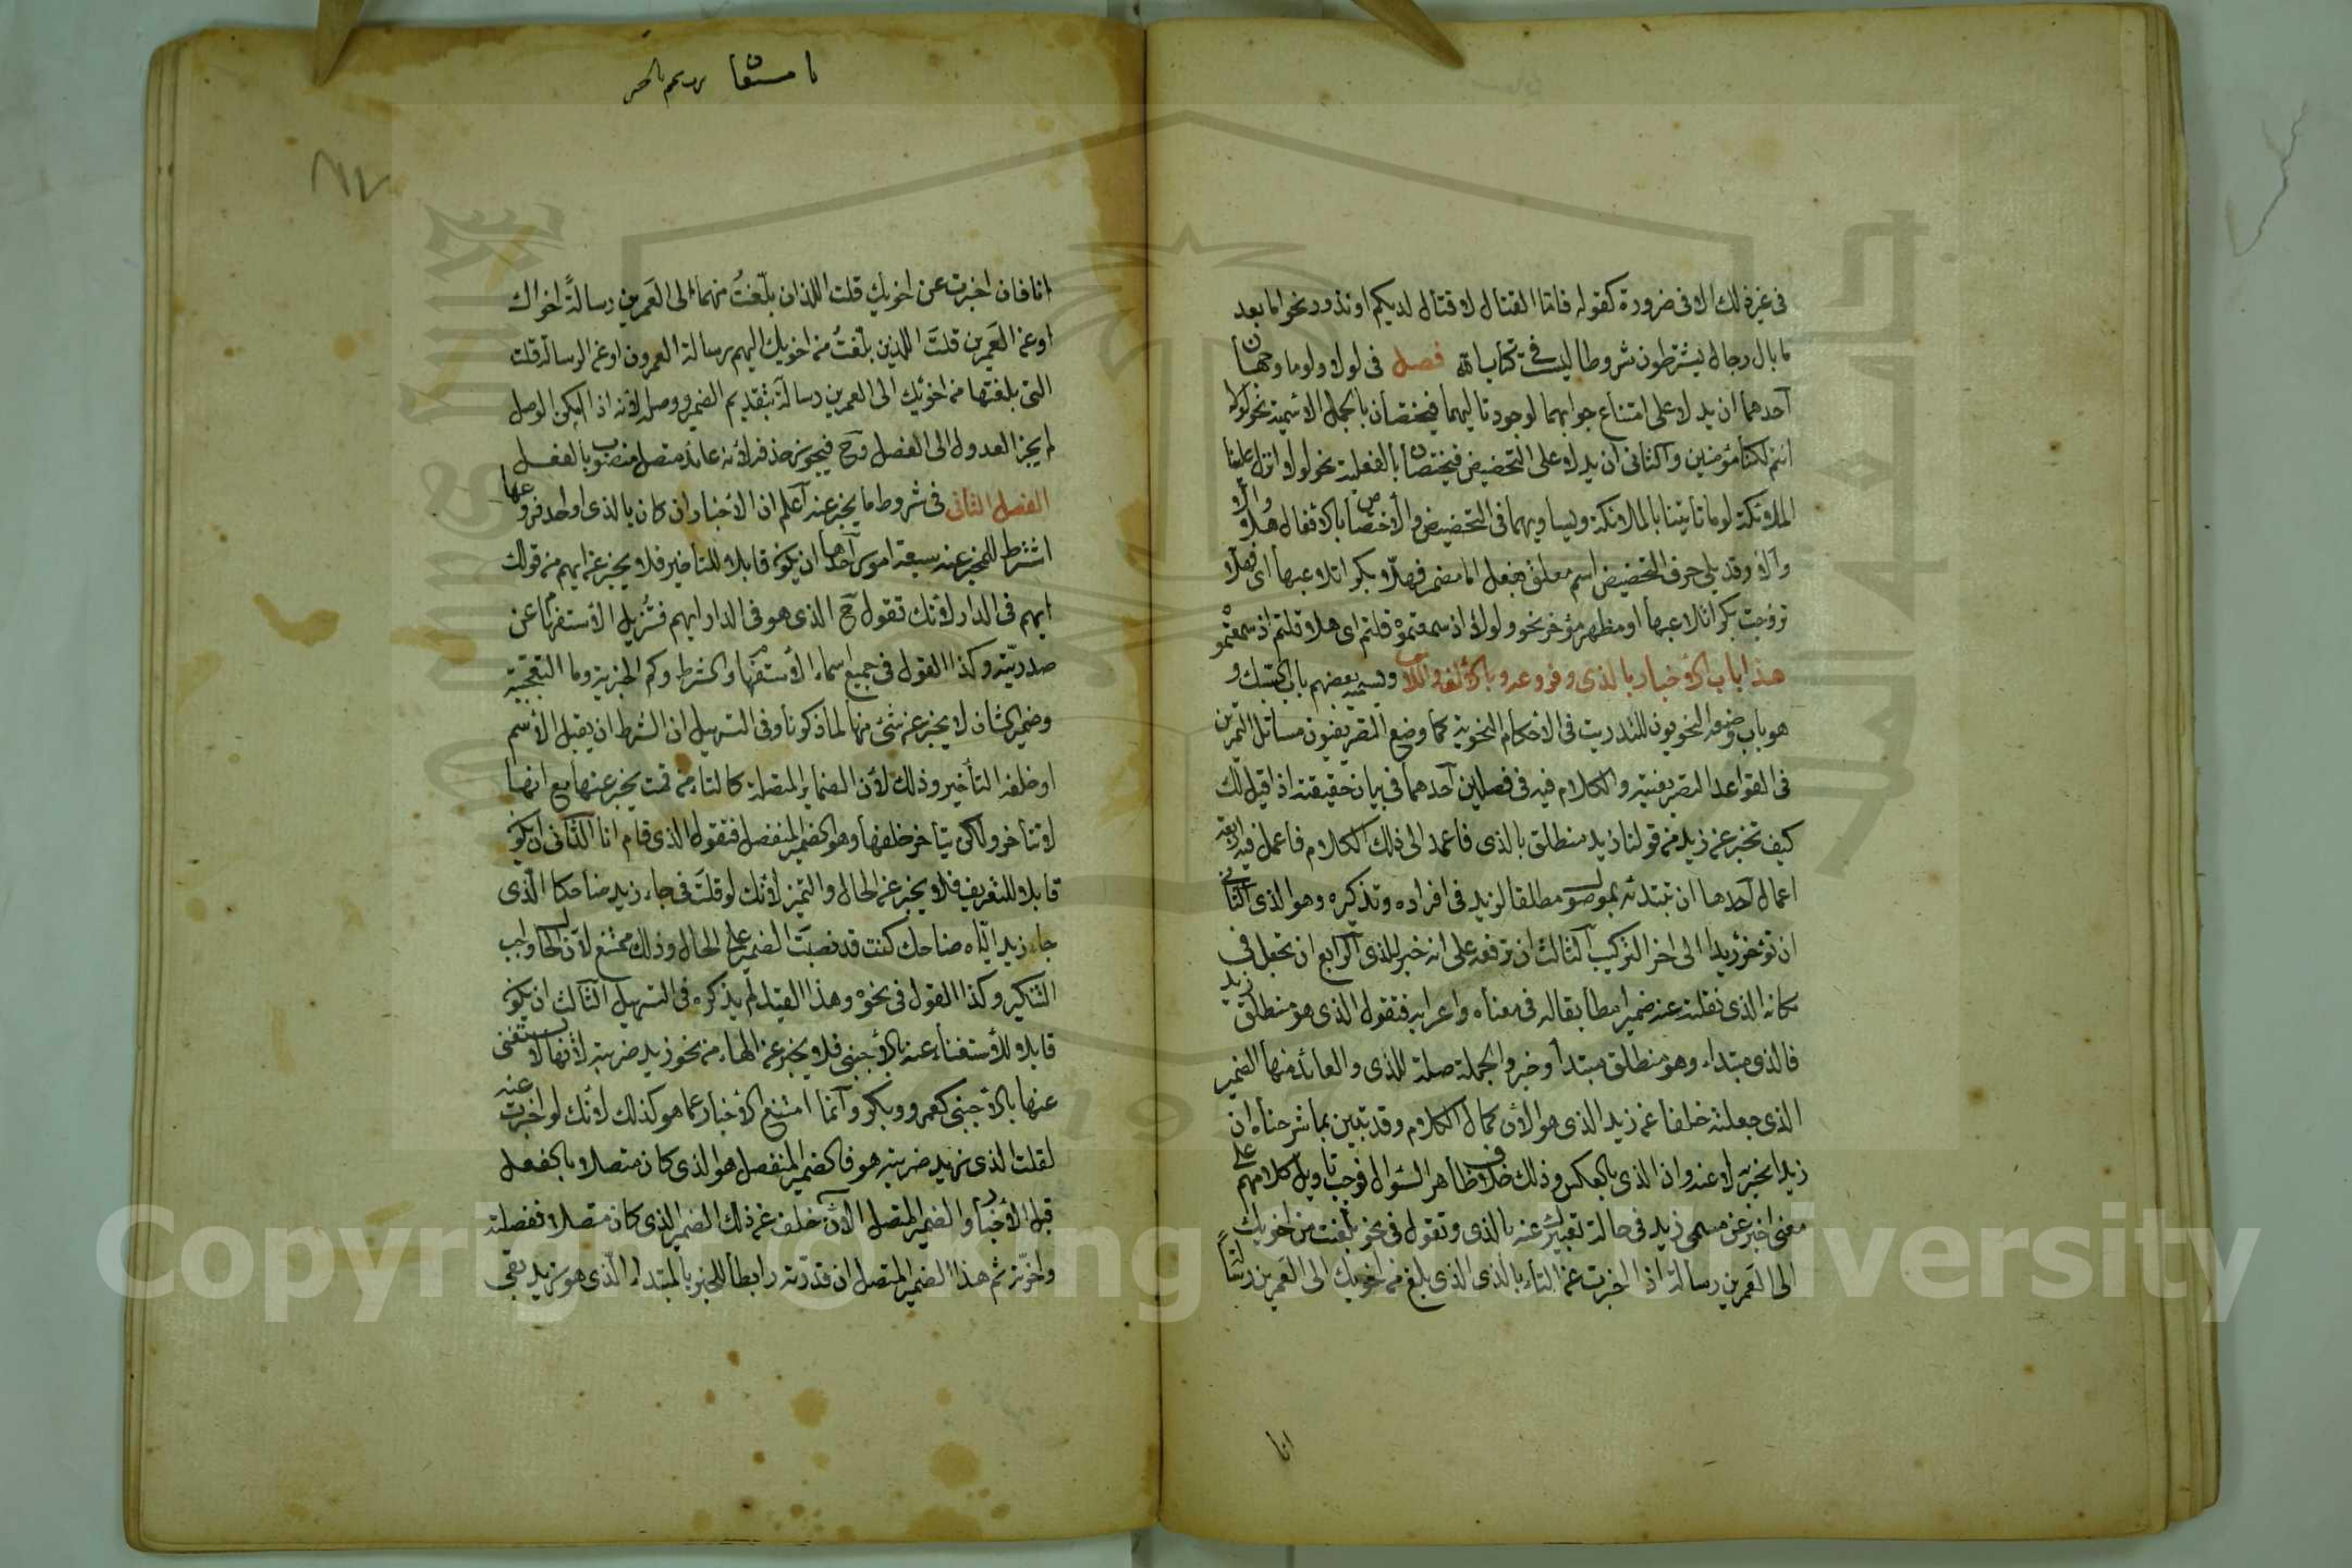 فى غير ذلك الا فى ضرورة كقوله فاما القتال لا قتال لديكم او ندور نحو اما بعد
ما بال رجال يشترطون شروطا ليست فى كتاب الله فصل فى لولا ولوما وجهان
احدهما ان يدلا على امتناع جوابهما لوجود تاليهما فيختصان بالجمل الاسمية نحو لولا
انتم لكنا مؤمنين والثانى ان يدلا على التحضيض فيختصان بالفعلية نحو لولا انزل علينا
الملائكة لوما تأتينا بالملائكة ويساويهما فى التحضيض والاختصاص بالافعال هلا والا
وألا وقد يلى حرف التحضيض اسم معلق بفعل اما مضمر فهلا بكرا تلاعبها اى فهلا
تزوجت بكرا تلاعبها او مظهر مؤخر نحو ولولا اذ سمعتموه قلتم اى هلا قلتم اذ سمعتموه
هذا باب الاخبار بالذى وفروعه وبالالف واللام ويسميه بعضهم باب السبك و
هو باب وضعه النحويون للتدريب فى الاحكام النحوية كما وضع التصريفيون مسائل التمرين
فى القواعد التصريفية والكلام فيه فى فصلين احدهما فى بيان حقيقته اذا قيل لك
كيف تخبر عن زيد من قولنا زيد منطلق بالذى فاعمد الى ذلك الكلام فاعمل فيه اربعة
اعمال احدها ان تبتدئه بموصول مطلقا لزيد فى افراده وتذكيره وهو الذى الثانى
ان تؤخر زيدا الى اخر التركيب الثالث ان ترفعه على انه خبر للذى الرابع ان تجعل فى
مكانه الذى نقلته عنه ضميرا مطابقا له فى معناه واعرابه فتقول الذى هو منطلق زيد
فالذى مبتداء وهو منطلق مبتدأ وخبر والجملة صلة للذى والعائد منها الضمير
الذى جعلته خلفا عن زيد الذى هو الان كمال الكلام وقد تبين بما شرحناه ان
زيدا مخبر به لا عنه وان الذى بالعكس وذلك خلاف ظاهر السؤال فوجب تاويل كلامهم على
معنى اخبر عن مسمى زيد فى حالة تعبيرك عنه بالذى وتقول فى نحو بلغت من اخويك
الى العمرين رسالة اذا اخبرت عن التاء بالذى الذى بلغ من اخويك الى العمرين رسالة
انا
انا فان اخبرت عن اخويك قلت اللذان بلغت منهما الى العمرين رسالة اخواك
او عن العمرين قلت الذين بلغت من اخويك اليهم رسالة العمرون او عن الرسالة قلت
التى بلغتها من اخويك الى العمرين رسالة بتقديم الضمير ووصله لانه اذا امكن الوصل
لم يجز العدول الى الفصل وح فيجوز حذفه لانه عائد متصل منصوب بالفعل
الفصل الثانى فى شروط ما يخبر عنه اعلم ان الاخبار ان كان بالذى او احد فروعها
اشترط للمخبر عنه سبعة امور احدها ان يكون قابلا للتأخير فلا يخبر عن ايهم من قولك
ايهم فى الدار لانك تقول ح الذى هو فى الدار ايهم فتزيل الاستفهام عن
صدريته وكذا القول فى جميع اسماء الاستفهام والشرط وكم الخبرية وما التعجبية
وضمير الشان لا يخبر عن شئ منها لما ذكرنا وفى التسهيل ان الشرط ان يقبل الاسم
او خلفه التأخير وذلك لان الضماير المتصلة كالتاء من قمت يخبر عنها مع انها
لا تتأخر ولكن يتأخر خلفها وهو الضمير المنفصل فتقول الذى قام انا الثانى ان يكون
قابلا للتعريف فلا يخبر عن الحال والتميز لانك لو قلت فى جاء زيد ضاحكا الذى
جاء زيد اياه ضاحك كنت قد نصبت الضمير على الحال وذلك ممتنع لان الحال واجب
التنكير وكذا القول فى نحوه وهذا القيد لم يذكره فى التسهيل الثالث ان يكون
قابلا للاستغناء عنه بالاجنبى فلا يخبر عن الهاء من نحو زيد ضربته لانها لا يستغنى
عنها بالاجنبى كعمرو وبكر وانما امتنع الاخبار عما هو كذلك لانك لو اخبرت عنه
لقلت الذى زيد ضربته هو فالضمير المنفصل هو الذى كان متصلا بالفعل
قبل الاخبار والضمير المتصل الان خلف عن ذلك الضمير الذى كان متصلا ففصلته
واخرته ثم هذا الضمير المتصل ان قدرته رابطا للخبر بالمبتداء الذى هو زيد بقى
Copyright © King Saud University